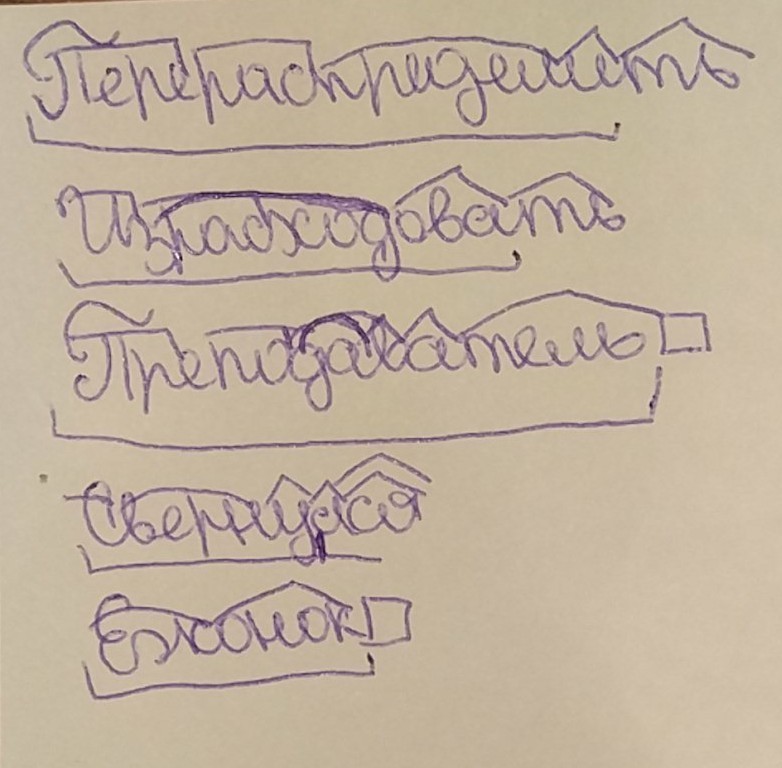 Перераспределить
Израсходовать
Преподаватель
Свернулся
Ежонок